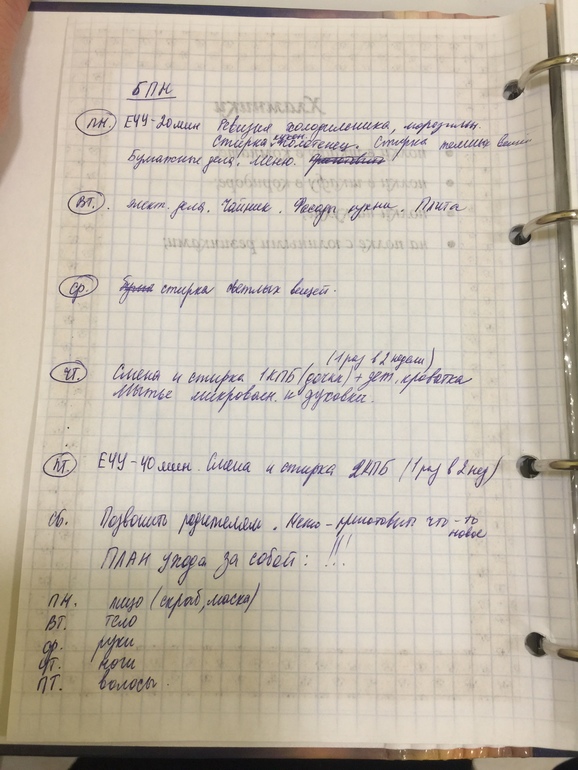 БПН
пн. ЕЧУ-20мин Ревизия холодильника, морозильн.
Стирка кухон. полотенец. Стирка темных вещей
Бумажные дела. Меню.
вт. Элект. дела. Чайник. Фасады кухни. Плита
ср. стирка светлых вещей.
(1 раз в 2 недели)
чт. Смена и стирка 1КПБ (дочка) + дет. кроватка
Мытье микроволн. и духовки.
пт. ЕЧУ-40мин. Смена и стирка 2КПБ (1 раз в 2 нед)
сб. Позвонить родителям. Меню - приготовить что-то
новое
ПЛАН ухода за собой: !!!
пн. лицо (скраб, маска)
вт. тело
ср. руки
чт. ноги
пт. волосы.
Хламтики
полки шкафа в коридоре;
на полке с юлиными резинками;